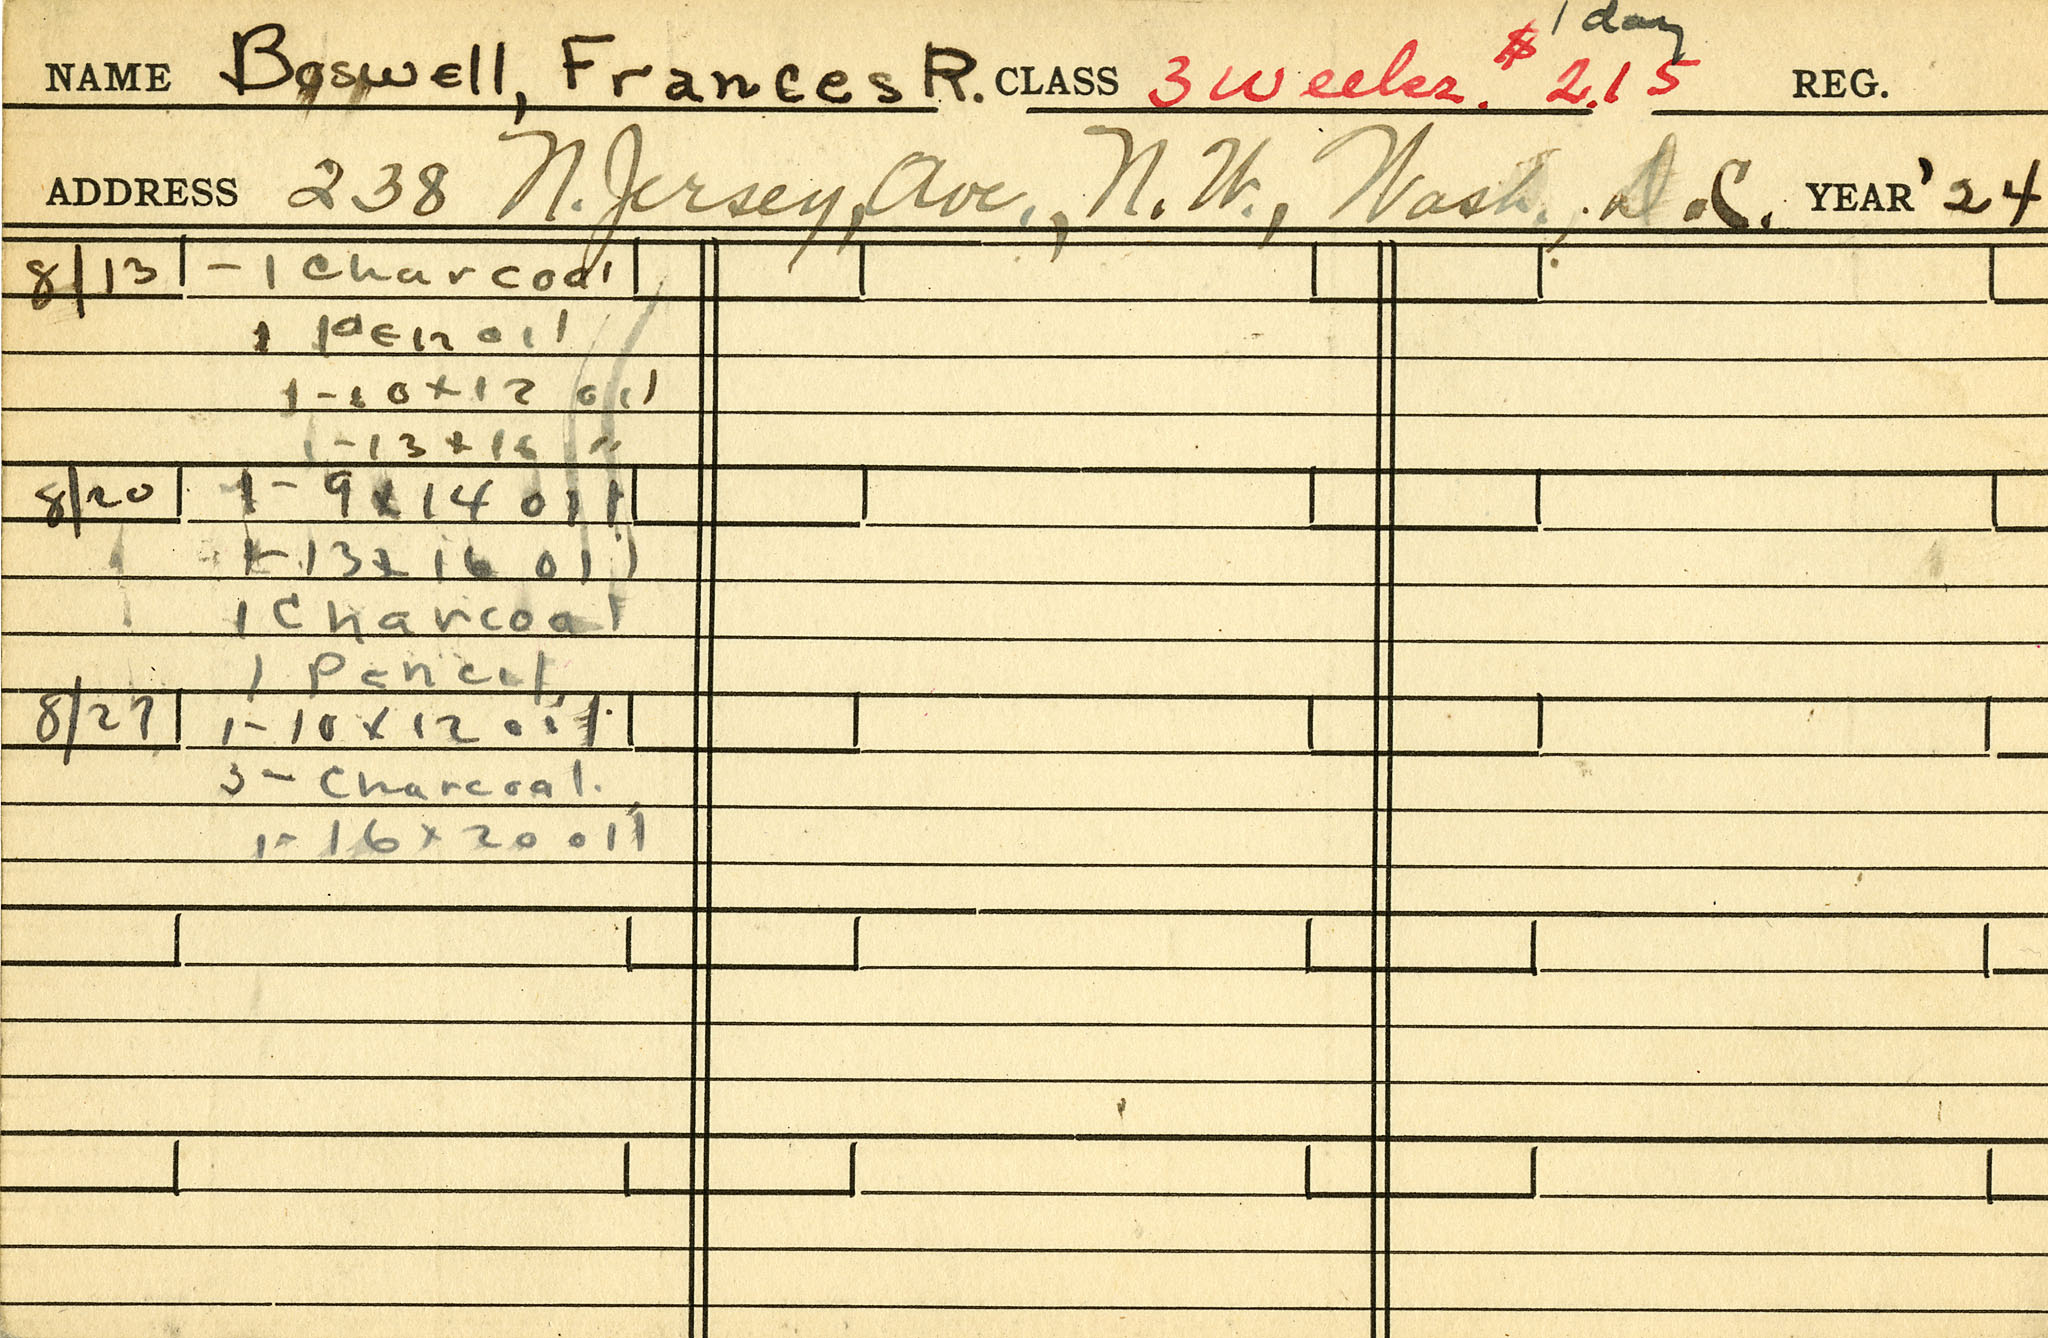 1 day
NAME Boswell, Frances R. CLASS 3 Weeks. $2.15 REG.
ADDRESS 238 N. Jersey, Ave., N. W., Wash., D.C. YEAR '24
8/13 - 1 Charcoal
1 Pen oil
1-10x12 oil
1-13x16 "
8/20 1-9x14 oil
1-13x16 oil
1 Charcoal
1 Pencil
8/27 1-10x12 oil
3- Charcoal.
1-16x20 oil